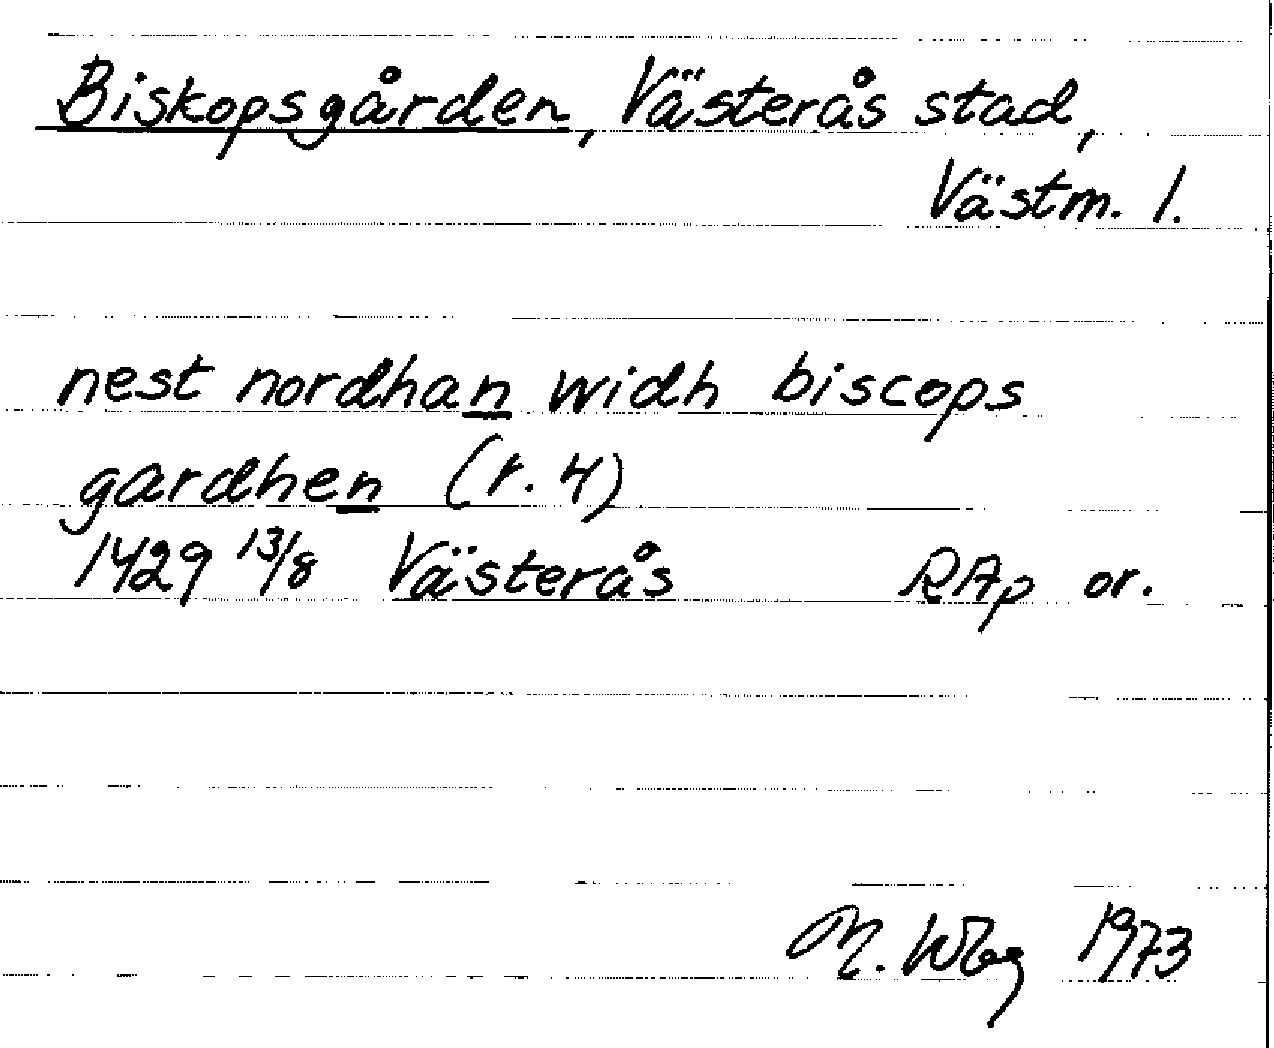 Biskopsgården, Västerås stad,
Västm. l.
nest nordhan widh biscops
gardhen (r. 4)
1429 13/8 Västerås RAp or.
M. Wbg 1973